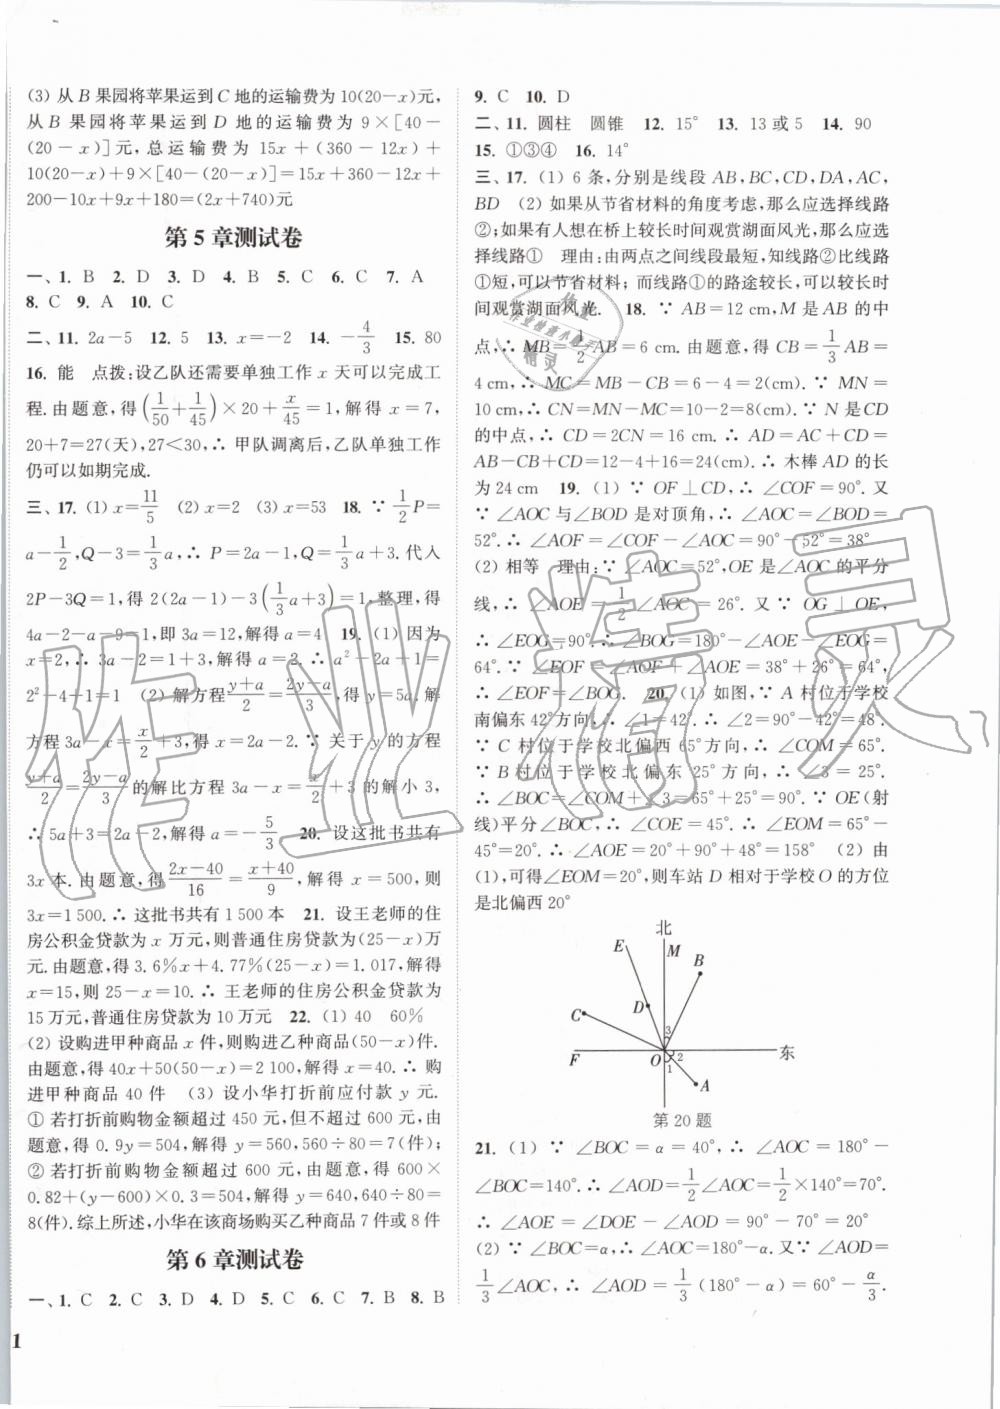 (3) 从 B 果园将苹果运到 C 地的运输费为 10(20－x)元,
从 B 果园将苹果运到 D 地的运输费为 9×[40－
(20－x)]元,总运输费为 15x＋(360－12x)＋
10(20－x)＋9×[40－(20－x)]＝15x＋360－12x＋
200－10x＋9x＋180＝(2x＋740)元
第 5 章测试卷
一、1. B 2. D 3. D 4. B 5. C 6. C 7. A
8. C 9. A 10. C
二、11. 2a－5 12. 5 13. x＝－2 14. －4/3 15. 80
16. 能 点拨:设乙队还需要单独工作 x 天可以完成工
程.由题意,得(1/50＋1/45)×20＋x/45＝1,解得 x＝7,
20＋7＝27(天),27＜30,∴ 甲队调离后,乙队单独工作
仍可以如期完成.
三、17. (1) x＝11/5 (2) x＝2 (3) x＝53 18. ∵ 1/2P＝
a－1/2,Q－3＝1/3a,∴ P＝2a－1,Q＝1/3a＋3.代入
2P－3Q＝1,得 2(2a－1)－3(1/3a＋3)＝1,整理,得
4a－2－a－9＝1,即 3a＝12,解得 a＝4 19. (1) 因为
x＝2,∴ 3a－2＝1＋3,解得 a＝2.∴ a²－2a＋1＝
2²－4＋1＝1 (2) 解方程(y＋a)/2＝(2y－a)/3,得 y＝5a,解
方程 3a－x＝x/2＋3,得 x＝2a－2.∵ 关于 y 的方程
(y＋a)/2＝(2y－a)/3 的解比方程 3a－x＝x/2＋3 的解小 3,
∴ 5a＋3＝2a－2,解得 a＝－5/3 20. 设这批书共有
3x 本.由题意,得(2x－40)/16＝(x＋40)/9,解得 x＝500,则
3x＝1 500.∴ 这批书共有 1 500 本 21. 设王老师的住
房公积金贷款为 x 万元,则普通住房贷款为(25－x)万
元.由题意,得 3.6%x＋4.77%(25－x)＝1.017,解得
x＝15,则 25－x＝10.∴ 王老师的住房公积金贷款为
15 万元,普通住房贷款为 10 万元 22. (1) 40 60%
(2) 设购进甲种商品 x 件,则购进乙种商品(50－x)件.
由题意,得 40x＋50(50－x)＝2 100,解得 x＝40.∴ 购
进甲种商品 40 件 (3) 设小华打折前应付款 y 元.
① 若打折前购物金额超过 450 元,但不超过 600 元,由
题意,得 0.9y＝504,解得 y＝560,560÷80＝7(件);
② 若打折前购物金额超过 600 元,由题意,得 600×
0.82＋(y－600)×0.3＝504,解得 y＝640,640÷80＝
8(件).综上所述,小华在该商场购买乙种商品 7 件或 8 件
第 6 章测试卷
一、1. C 2. C 3. D 4. D 5. C 6. C 7. B 8. B
1
9. C 10. D
二、11. 圆柱 圆锥 12. 15° 13. 13 或 5 14. 90
15. ①③④ 16. 14°
三、17. (1) 6 条,分别是线段 AB,BC,CD,DA,AC,
BD (2) 如果从节省材料的角度考虑,那么应选择线路
②;如果有人想在桥上较长时间观赏湖面风光,那么应选
择线路① 理由:由两点之间线段最短,知线路②比线路
①短,可以节省材料;而线路①的路途较长,可以较长时
间观赏湖面风光. 18. ∵ AB＝12 cm,M 是 AB 的中
点,∴ MB＝1/2AB＝6 cm.由题意,得 CB＝1/3AB＝
4 cm,∴ MC＝MB－CB＝6－4＝2(cm).∵ MN＝
10 cm,∴ CN＝MN－MC＝10－2＝8(cm).∵ N 是CD
的中点,∴ CD＝2CN＝16 cm.∴ AD＝AC＋CD＝
AB－CB＋CD＝12－4＋16＝24(cm).∴ 木棒 AD 的长
为 24 cm 19. (1) ∵ OF⊥CD,∴ ∠COF＝90°.又
∵ ∠AOC 与∠BOD 是对顶角,∴ ∠AOC＝∠BOD＝
52°.∴ ∠AOF＝∠COF－∠AOC＝90°－52°＝38°
(2) 相等 理由:∵ ∠AOC＝52°,OE 是∠AOC 的平分
线,∴ ∠AOE＝1/2∠AOC＝26°.又∵ OG⊥OE,
∴ ∠EOG＝90°.∴ ∠BOG＝180°－∠AOE－∠EOG＝
64°.∵ ∠EOF＝∠AOF＋∠AOE＝38°＋26°＝64°,
∴ ∠EOF＝∠BOG. 20. (1) 如图,∵ A 村位于学校
南偏东 42°方向,∴ ∠1＝42°.∴ ∠2＝90°－42°＝48°.
∵ C 村位于学校北偏西 65°方向,∴ ∠COM＝65°.
∵ B 村位于学校北偏东 25°方向,∴ ∠3＝25°.
∴ ∠BOC＝∠COM＋∠3＝65°＋25°＝90°.∵ OE(射
线)平分∠BOC,∴ ∠COE＝45°.∴ ∠EOM＝65°－
45°＝20°.∴ ∠AOE＝20°＋90°＋48°＝158° (2) 由
(1),可得∠EOM＝20°,则车站 D 相对于学校 O 的方位
是北偏西 20°
北
E M B
D
C
3
F O 2 东
1
A
第 20 题
21. (1) ∵ ∠BOC＝α＝40°,∴ ∠AOC＝180°－
∠BOC＝140°.∴ ∠AOD＝1/2∠AOC＝1/2×140°＝70°.
∴ ∠AOE＝∠DOE－∠AOD＝90°－70°＝20°
(2) ∵ ∠BOC＝α,∴ ∠AOC＝180°－α.又∵ ∠AOD＝
1/3∠AOC,∴ ∠AOD＝1/3(180°－α)＝60°－α/3.
作业精灵